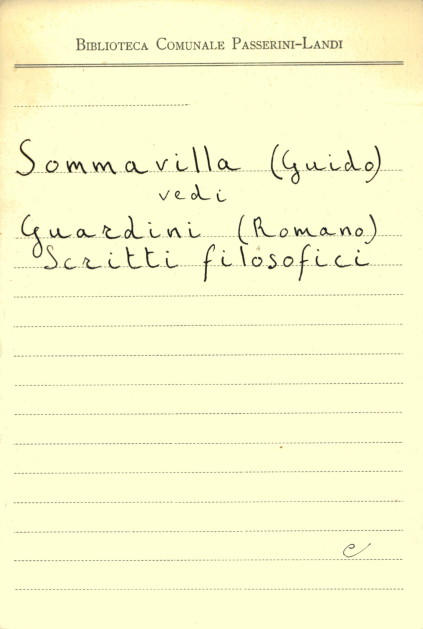 Biblioteca Comunale Passerini-Landi
Sommavilla (Guido)
vedi
Guardini (Romano)
Scritti filosofici